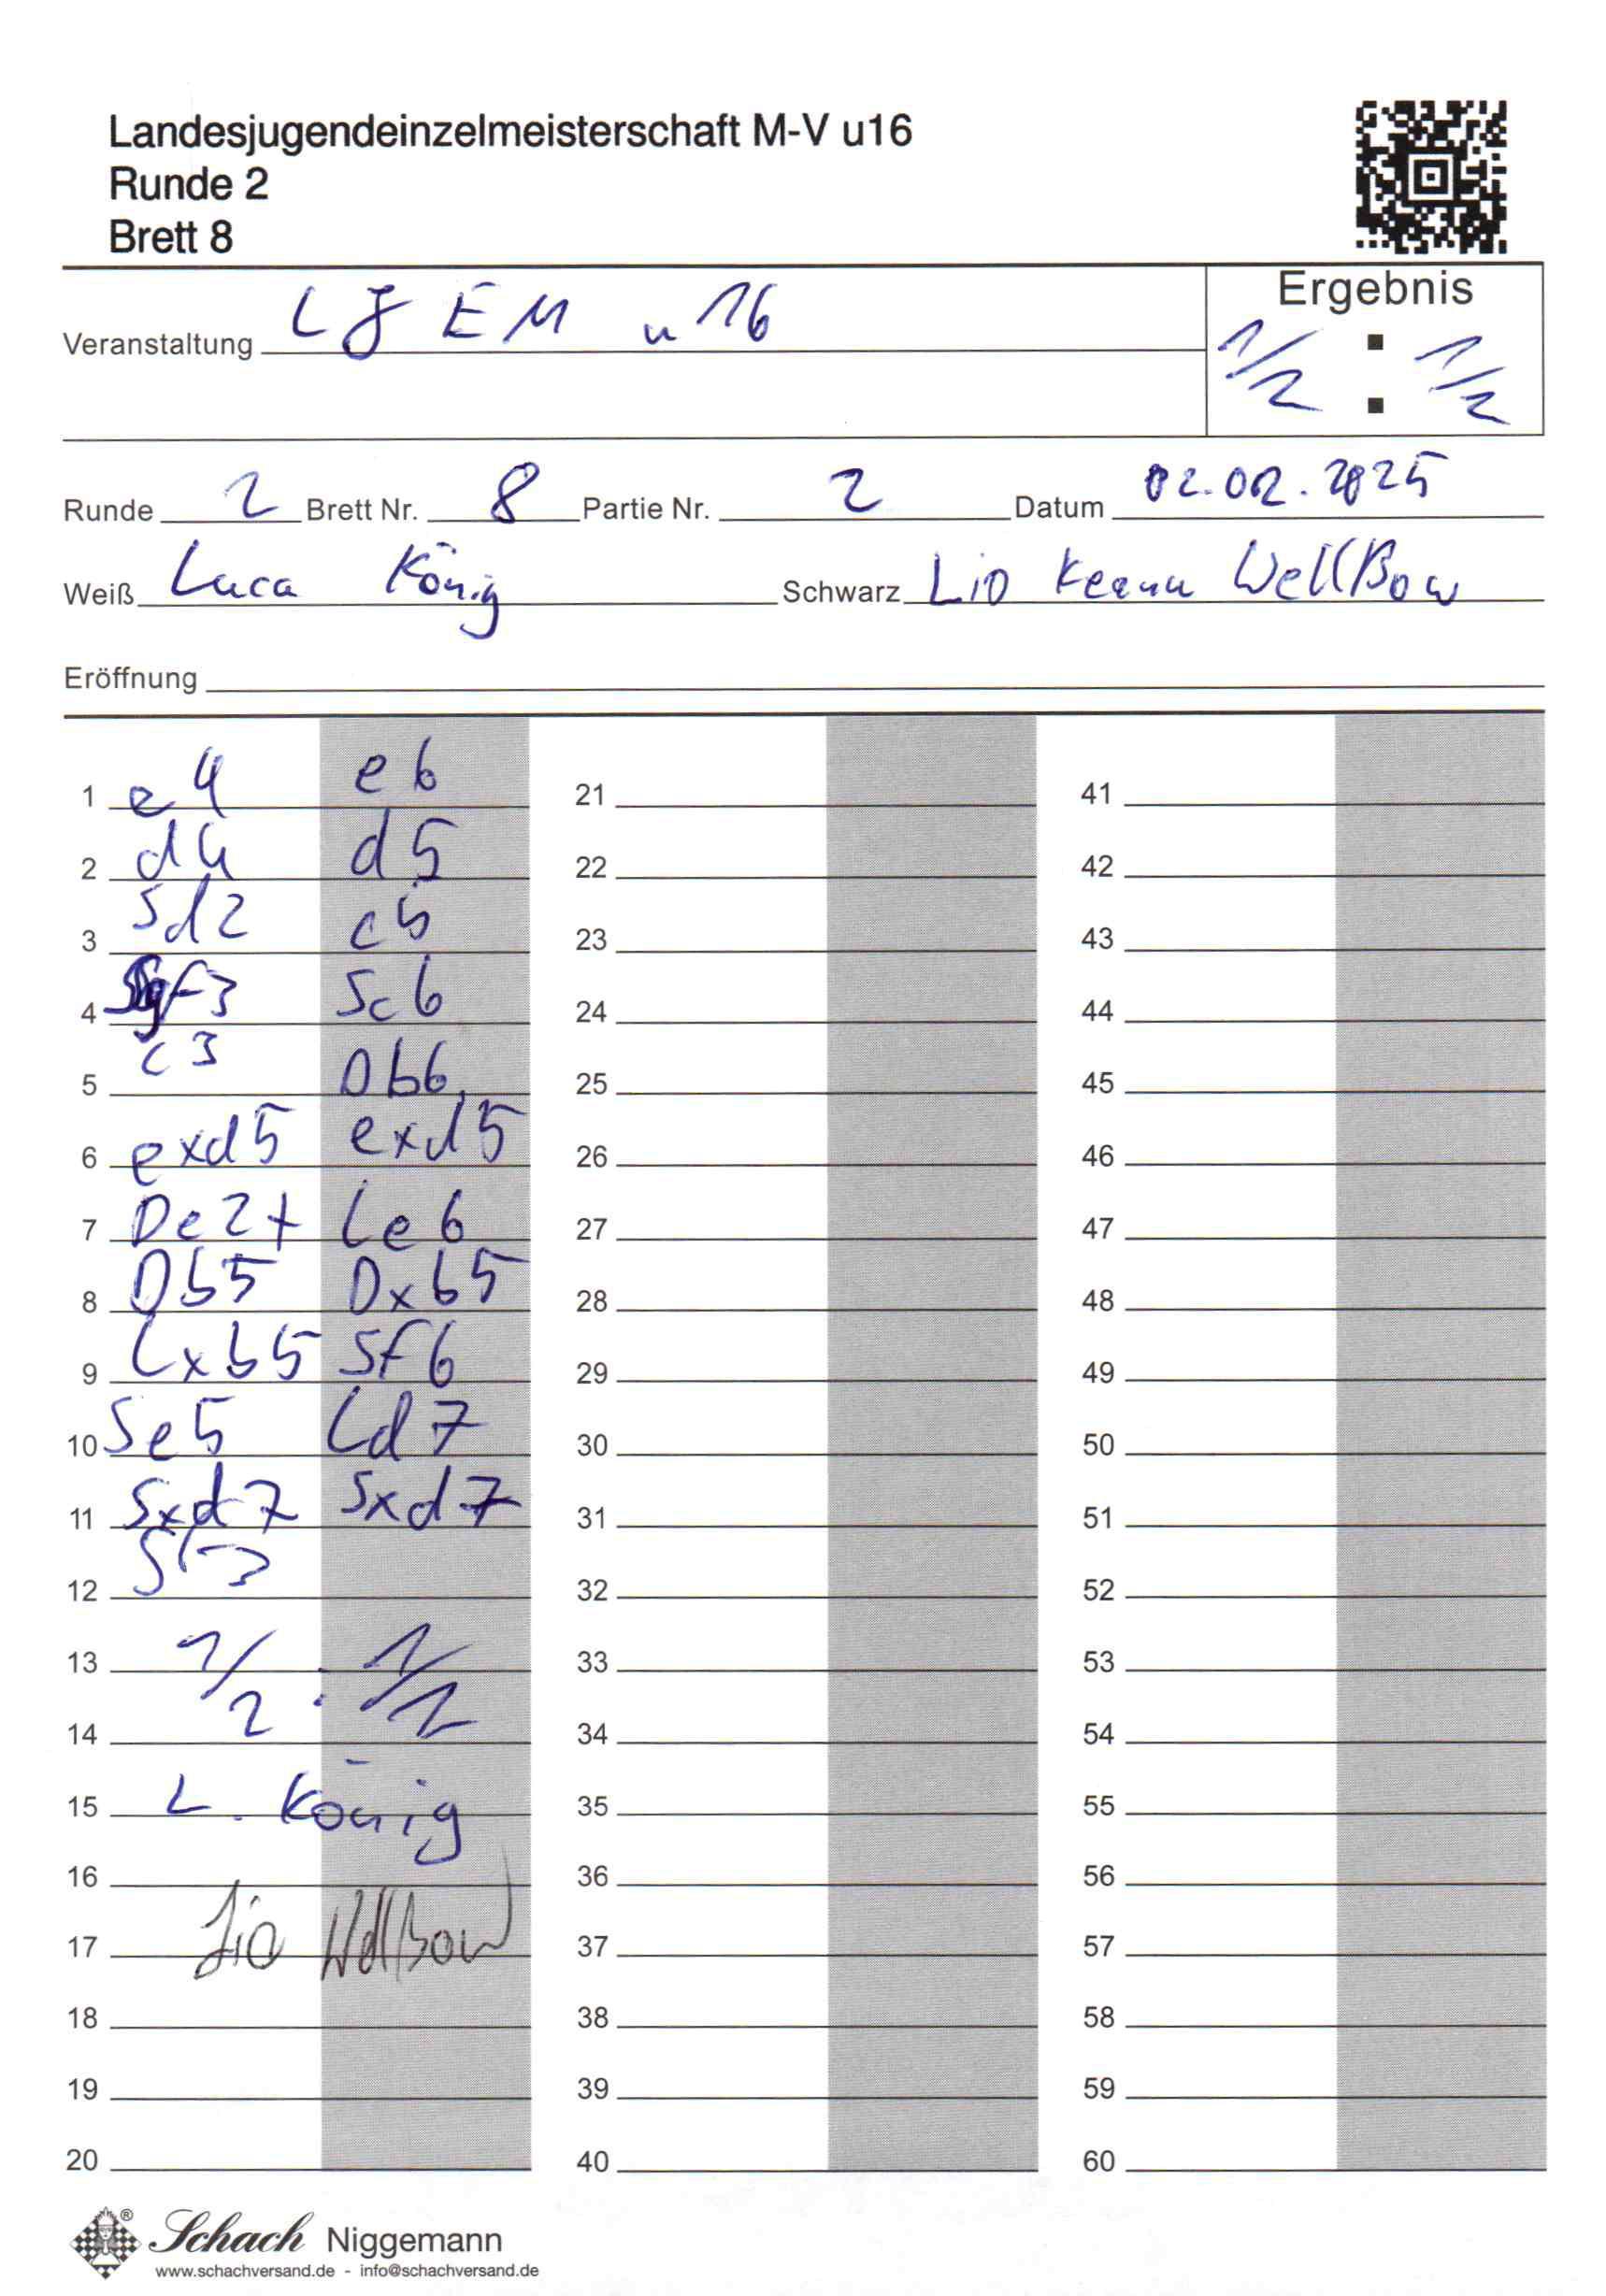 Landesjugendeinzelmeisterschaft M-V u16
Runde 2
Brett 8
Ergebnis
Veranstaltung LJEM u16
1/2 : 1/2
Runde 2 Brett Nr. 8 Partie Nr. 2 Datum 02.02.2025
Weiß Luca König Schwarz Lio Keanu WellBow
Eröffnung
1 e4 e6 21 41
2 d4 d5 22 42
3 Sd2 c5 23 43
4 Sgf3 Sc6 24 44
5 c3 Db6 25 45
6 exd5 exd5 26 46
7 De2+ Le6 27 47
8 Db5 Dxb5 28 48
9 Lxb5 Sf6 29 49
10 Se5 Ld7 30 50
11 Sxd7 Sxd7 31 51
12 Sf3 32 52
13 1/2 : 1/2 33 53
14 34 54
15 L. König 35 55
16 36 56
17 Lio WellBow 37 57
18 38 58
19 39 59
20 40 60
Schach Niggemann
www.schachversand.de - info@schachversand.de